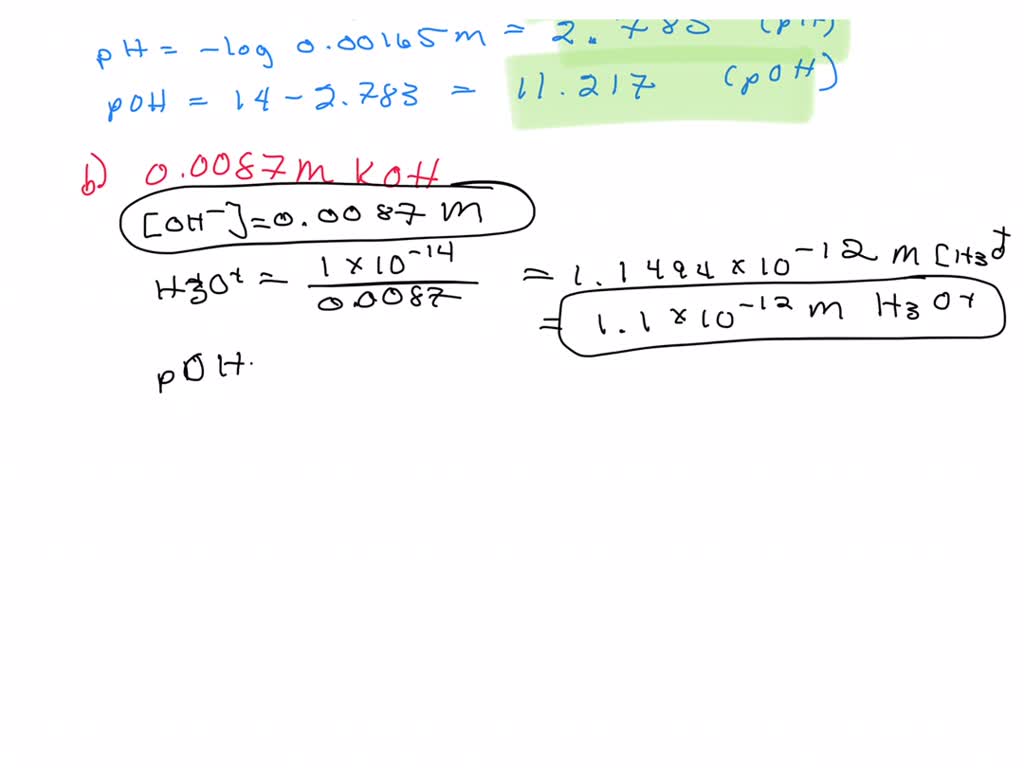 pH = -log 0.00165 m = 2.783 (pH)
pOH = 14 - 2.783 = 11.217 (pOH)
b) 0.0087 m KOH
[OH⁻] = 0.0087 m
H3O⁺ = 1 × 10⁻¹⁴ / 0.0087 = 1.1494 × 10⁻¹² m [H3O⁺
= 1.1 × 10⁻¹² m H3O⁺
pOH